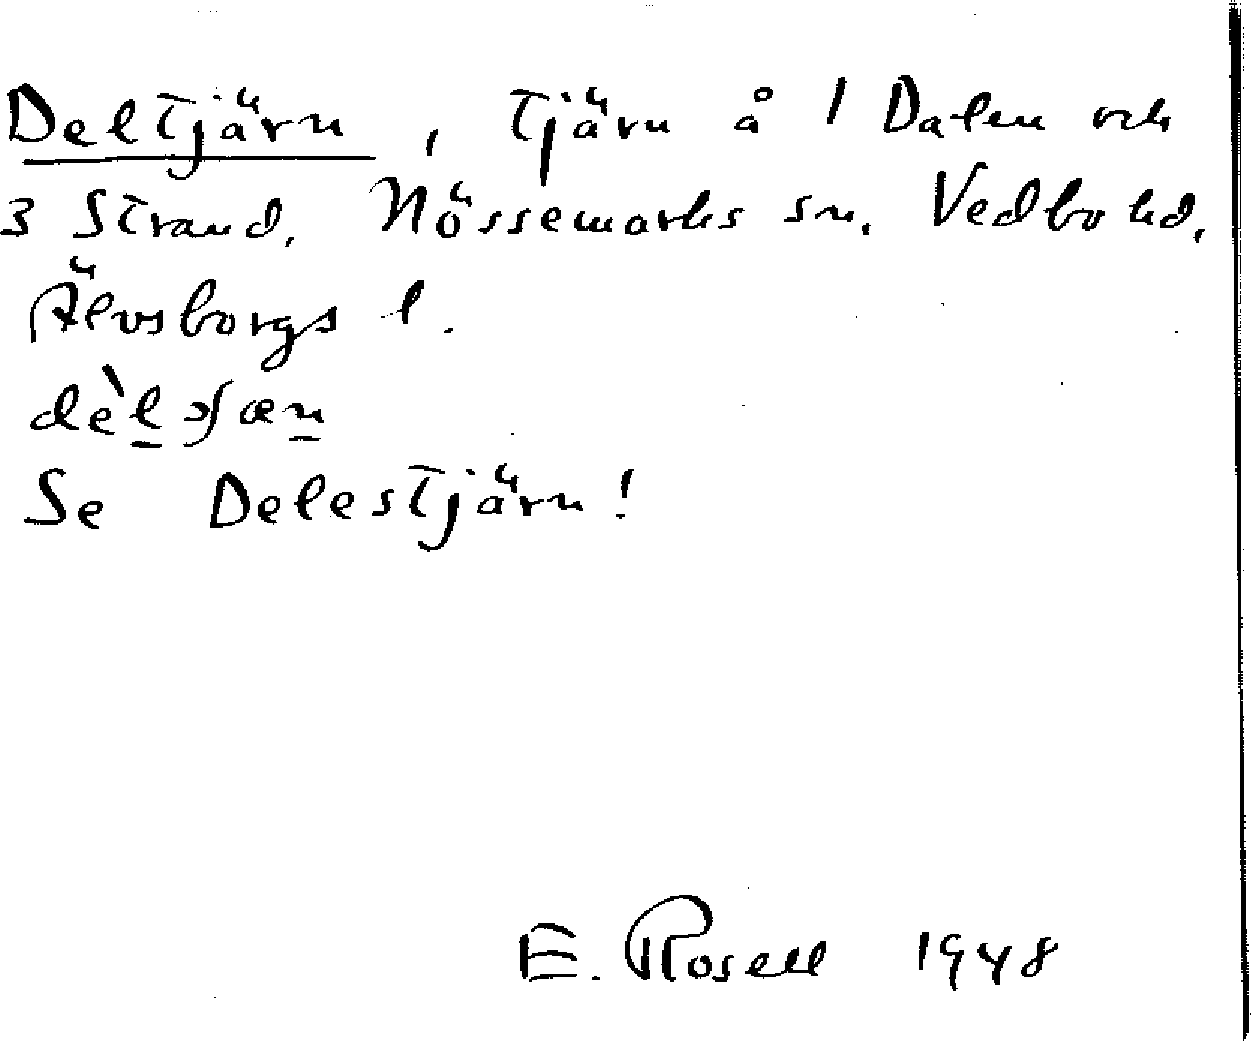 Deltjärn, Tjärn å 1 Dalen och
3 Strand. Nössemarks sn. Vedbo hd.
Älvsborgs l.
Se Delestjärn!
E. Rosell 1948